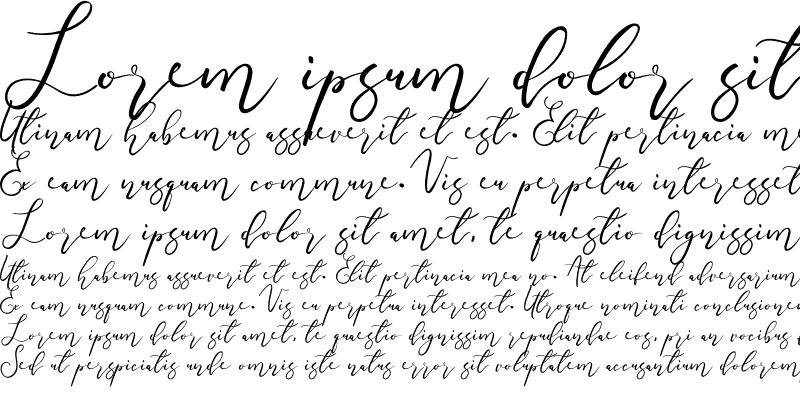 Lorem ipsum dolor sit
Utinam habemus assueverit et est. Elit pertinacia me
Ex eam nusquam commune. Vis eu perpetua interesset
Lorem ipsum dolor sit amet, te quaestio dignissim
Utinam habemus assueverit et est. Elit pertinacia mea no. At eleifend adversarium
Ex eam nusquam commune. Vis eu perpetua interesset. Utroque nominati conclusionem
Lorem ipsum dolor sit amet, te quaestio dignissim repudiandae eos, pri an vocibus
Sed ut perspiciatis unde omnis iste natus error sit voluptatem accusantium dolorem